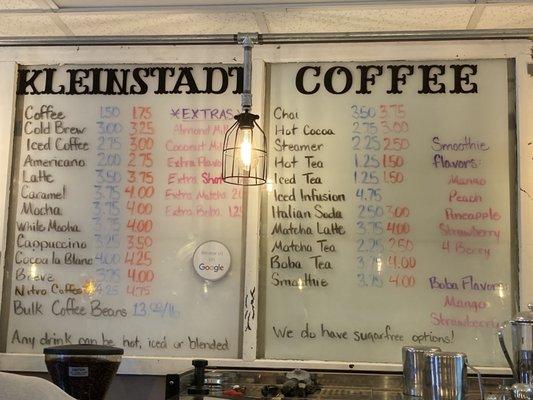 KLEINSTADT COFFEE
Coffee 1.50 1.75
Cold Brew 3.00 3.25
Iced Coffee 2.75 3.00
Americano 2.00 2.75
Latte 3.50 3.75
Caramel 3.75 4.00
Mocha 3.75 4.00
White Mocha 3.75 4.00
Cappuccino 3.25 3.50
Cocoa la Blanc 4.00 4.25
Breve 3.75 4.00
Nitro Coffee 4.25 4.75
Bulk Coffee Beans 13.00/lb
Any drink can be hot, iced or blended
*EXTRAS
Almond Mil
Coconut Mil
Extra Flavor
Extra Shot
Extra Matcha
Extra Boba 1.25
Google
Chai 3.50 3.75
Hot Cocoa 2.75 3.00
Steamer 2.25 2.50
Hot Tea 1.25 1.50
Iced Tea 1.25 1.50
Iced Infusion 4.75
Italian Soda 2.50 3.00
Matcha Latte 3.75 4.00
Matcha Tea 2.25 2.50
Boba Tea 3.75 4.00
Smoothie 3.75 4.00
We do have sugarfree options!
Smoothie
Flavors:
Mango
Peach
Pineapple
Strawberry
4 Berry
Boba Flavors
Mango
Strawberry